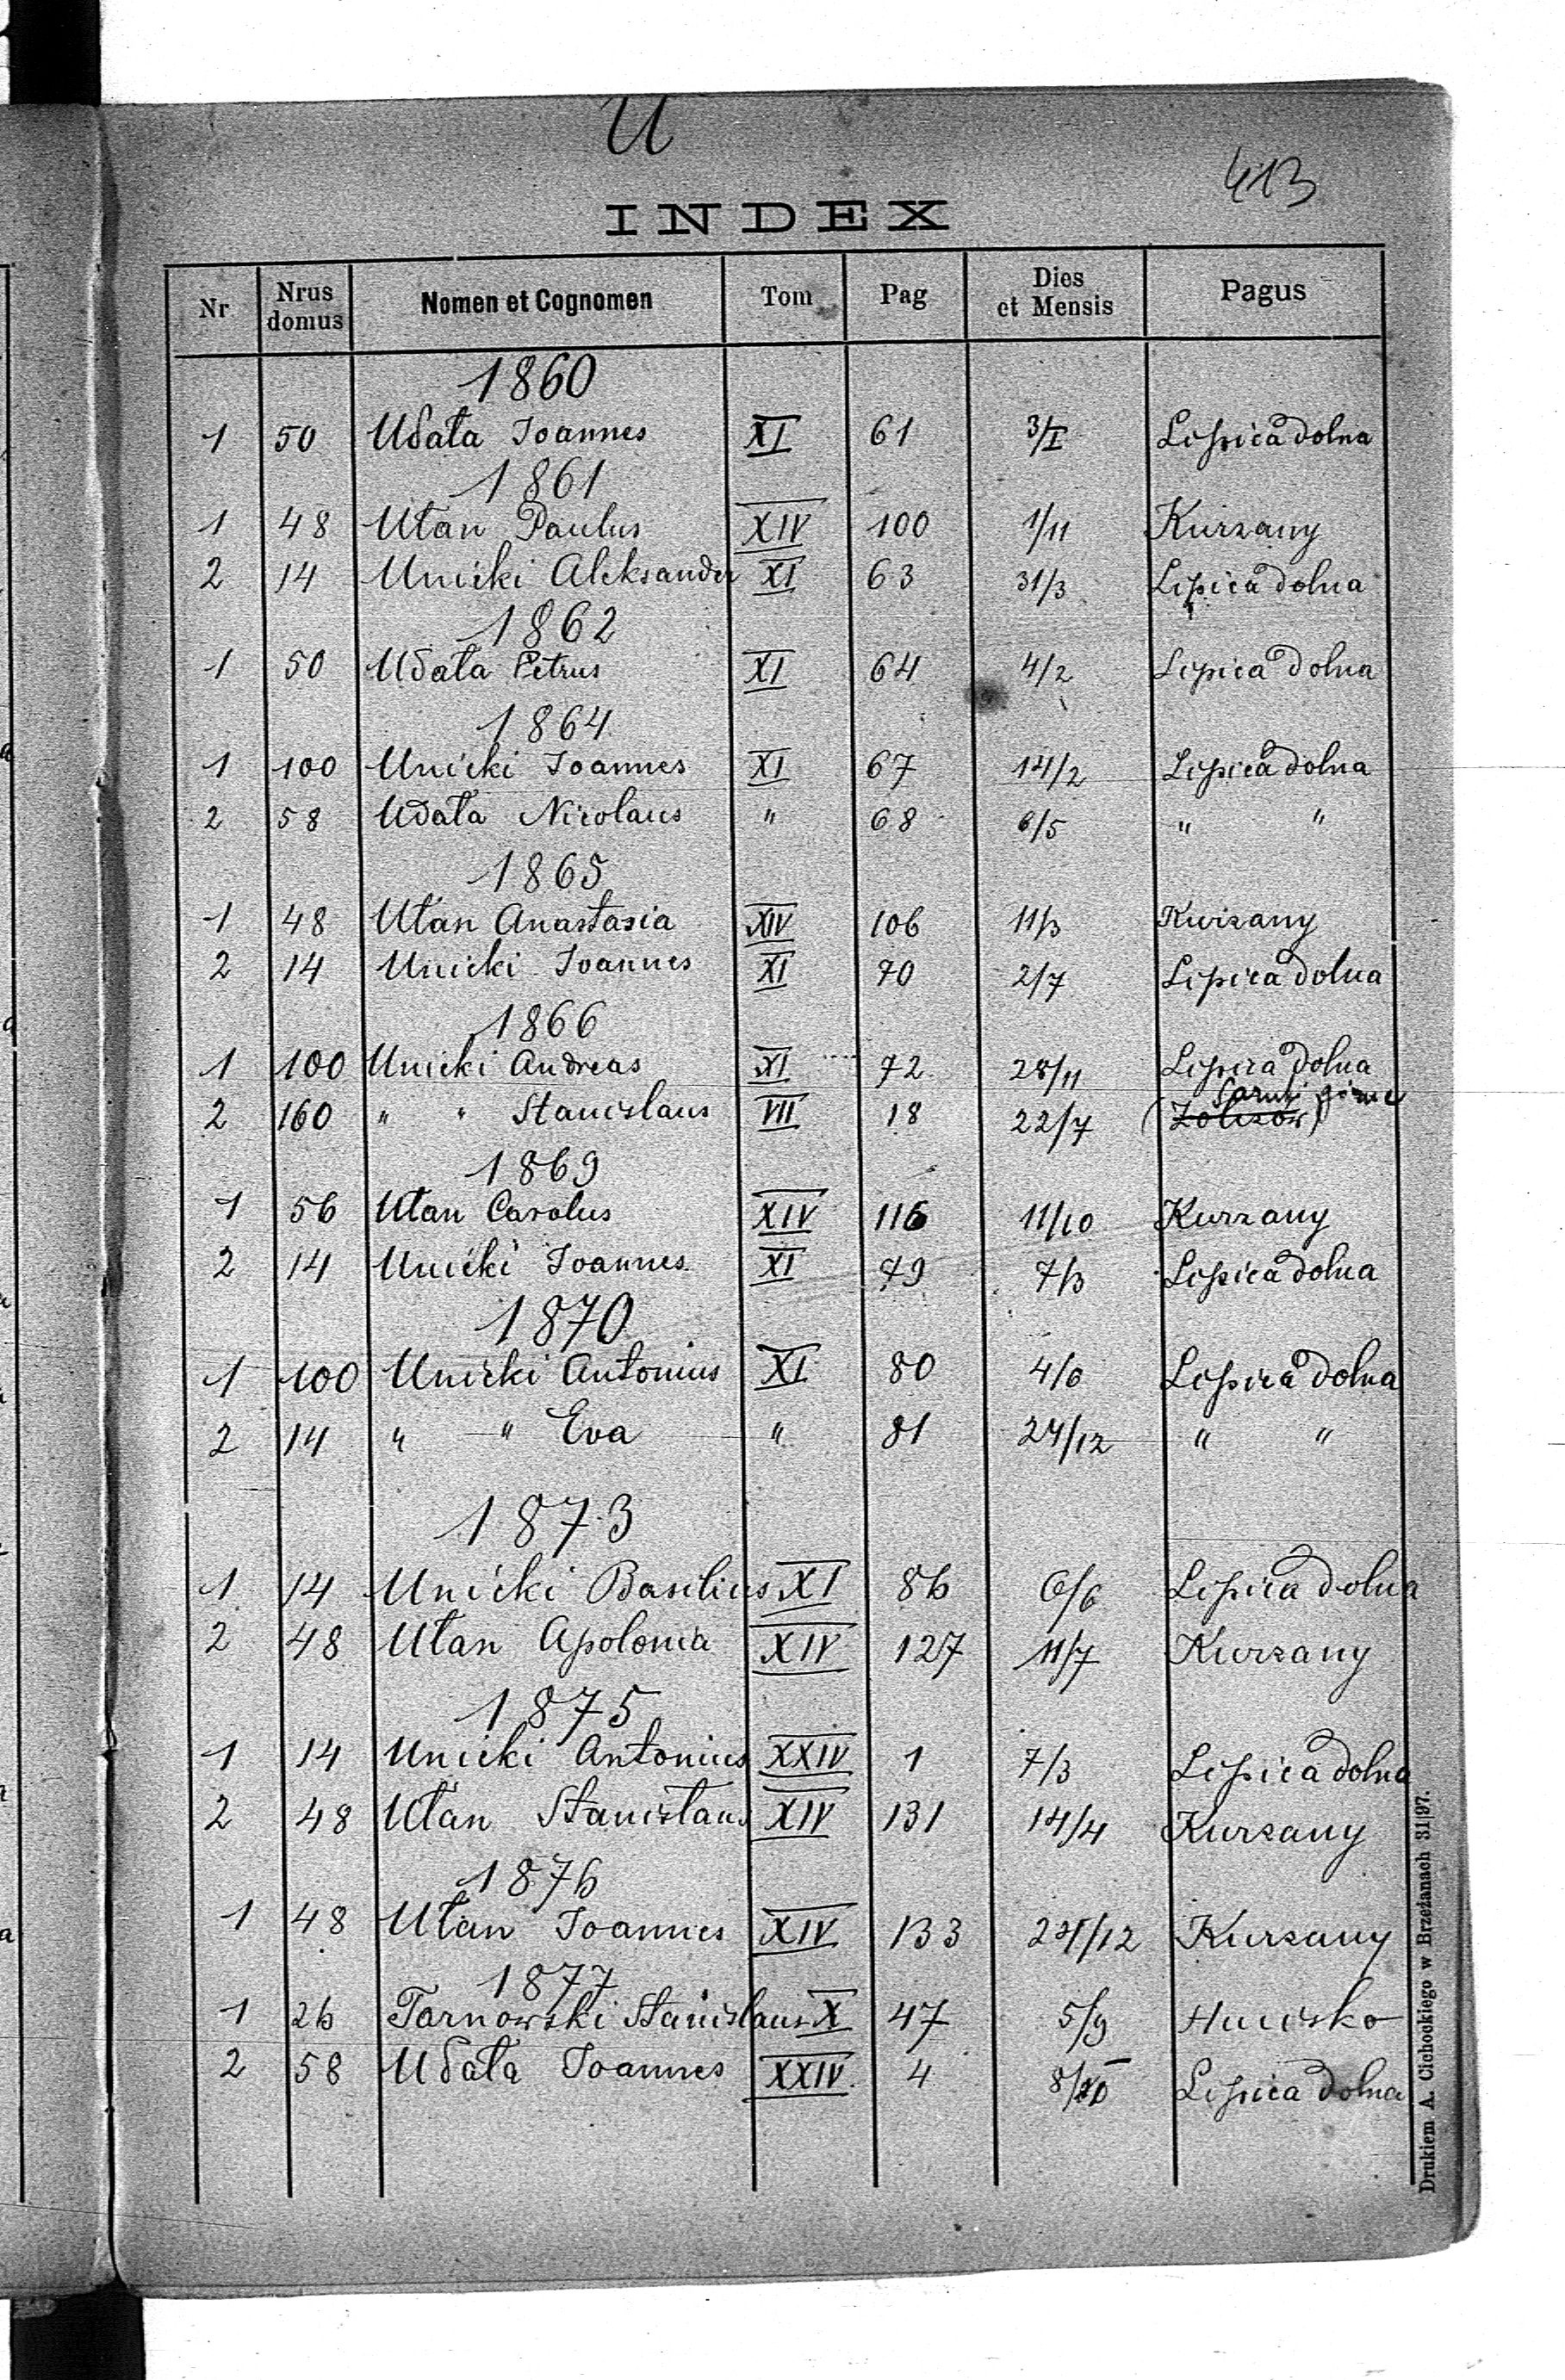 U
413
INDEX
Nr | Nrus domus | Nomen et Cognomen | Tom | Pag | Dies et Mensis | Pagus
1860
1 | 50 | Udata Joannes | XI | 61 | 3/I | Lipica dolna
1861
1 | 48 | Utan Paulus | XIV | 100 | 1/11 | Kurzany
2 | 14 | Unicki Aleksander | XI | 63 | 31/3 | Lipica dolna
1862
1 | 50 | Udata Petrus | XI | 64 | 4/2 | Lipica dolna
1864
1 | 100 | Unicki Joannes | XI | 67 | 14/2 | Lipica dolna
2 | 58 | Udata Nicolaus | " | 68 | 6/5 | " "
1865
1 | 48 | Utan Anastasia | XIV | 106 | 11/3 | Kurzany
2 | 14 | Unicki Joannes | XI | 70 | 2/7 | Lipica dolna
1866
1 | 100 | Unicki Andreas | XI | 72 | 28/11 | Lipica dolna
2 | 160 | " " Stanislaus | VII | 18 | 22/7 | (Żołczów)
1869
1 | 56 | Utan Carolus | XIV | 116 | 11/10 | Kurzany
2 | 14 | Unicki Joannes | XI | 79 | 7/3 | Lipica dolna
1870
1 | 100 | Unicki Antonius | XI | 80 | 4/6 | Lipica dolna
2 | 14 | " " Eva | " | 81 | 24/12 | " "
1873
1 | 14 | Unicki Basilius | XI | 86 | 6/6 | Lipica dolna
2 | 48 | Utan Apolonia | XIV | 127 | 11/7 | Kurzany
1875
1 | 14 | Unicki Antonius | XXIV | 1 | 7/3 | Lipica dolna
2 | 48 | Utan Stanisłaus | XIV | 131 | 14/4 | Kurzany
1876
1 | 48 | Utan Joannes | XIV | 133 | 24/12 | Kurzany
1877
1 | 26 | Tarnowski Stanislaus | X | 47 | 5/9 | Hucisko
2 | 58 | Udata Joannes | XXIV | 4 | Lipica dolna
Drukiem A. Cichockiego w Brzeżanach 31|97.